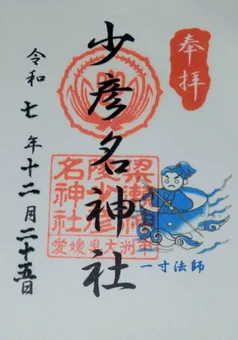 奉拝
少彦名神社
令和七年十二月二十五日
名神社
愛媛県大洲市
一寸法師